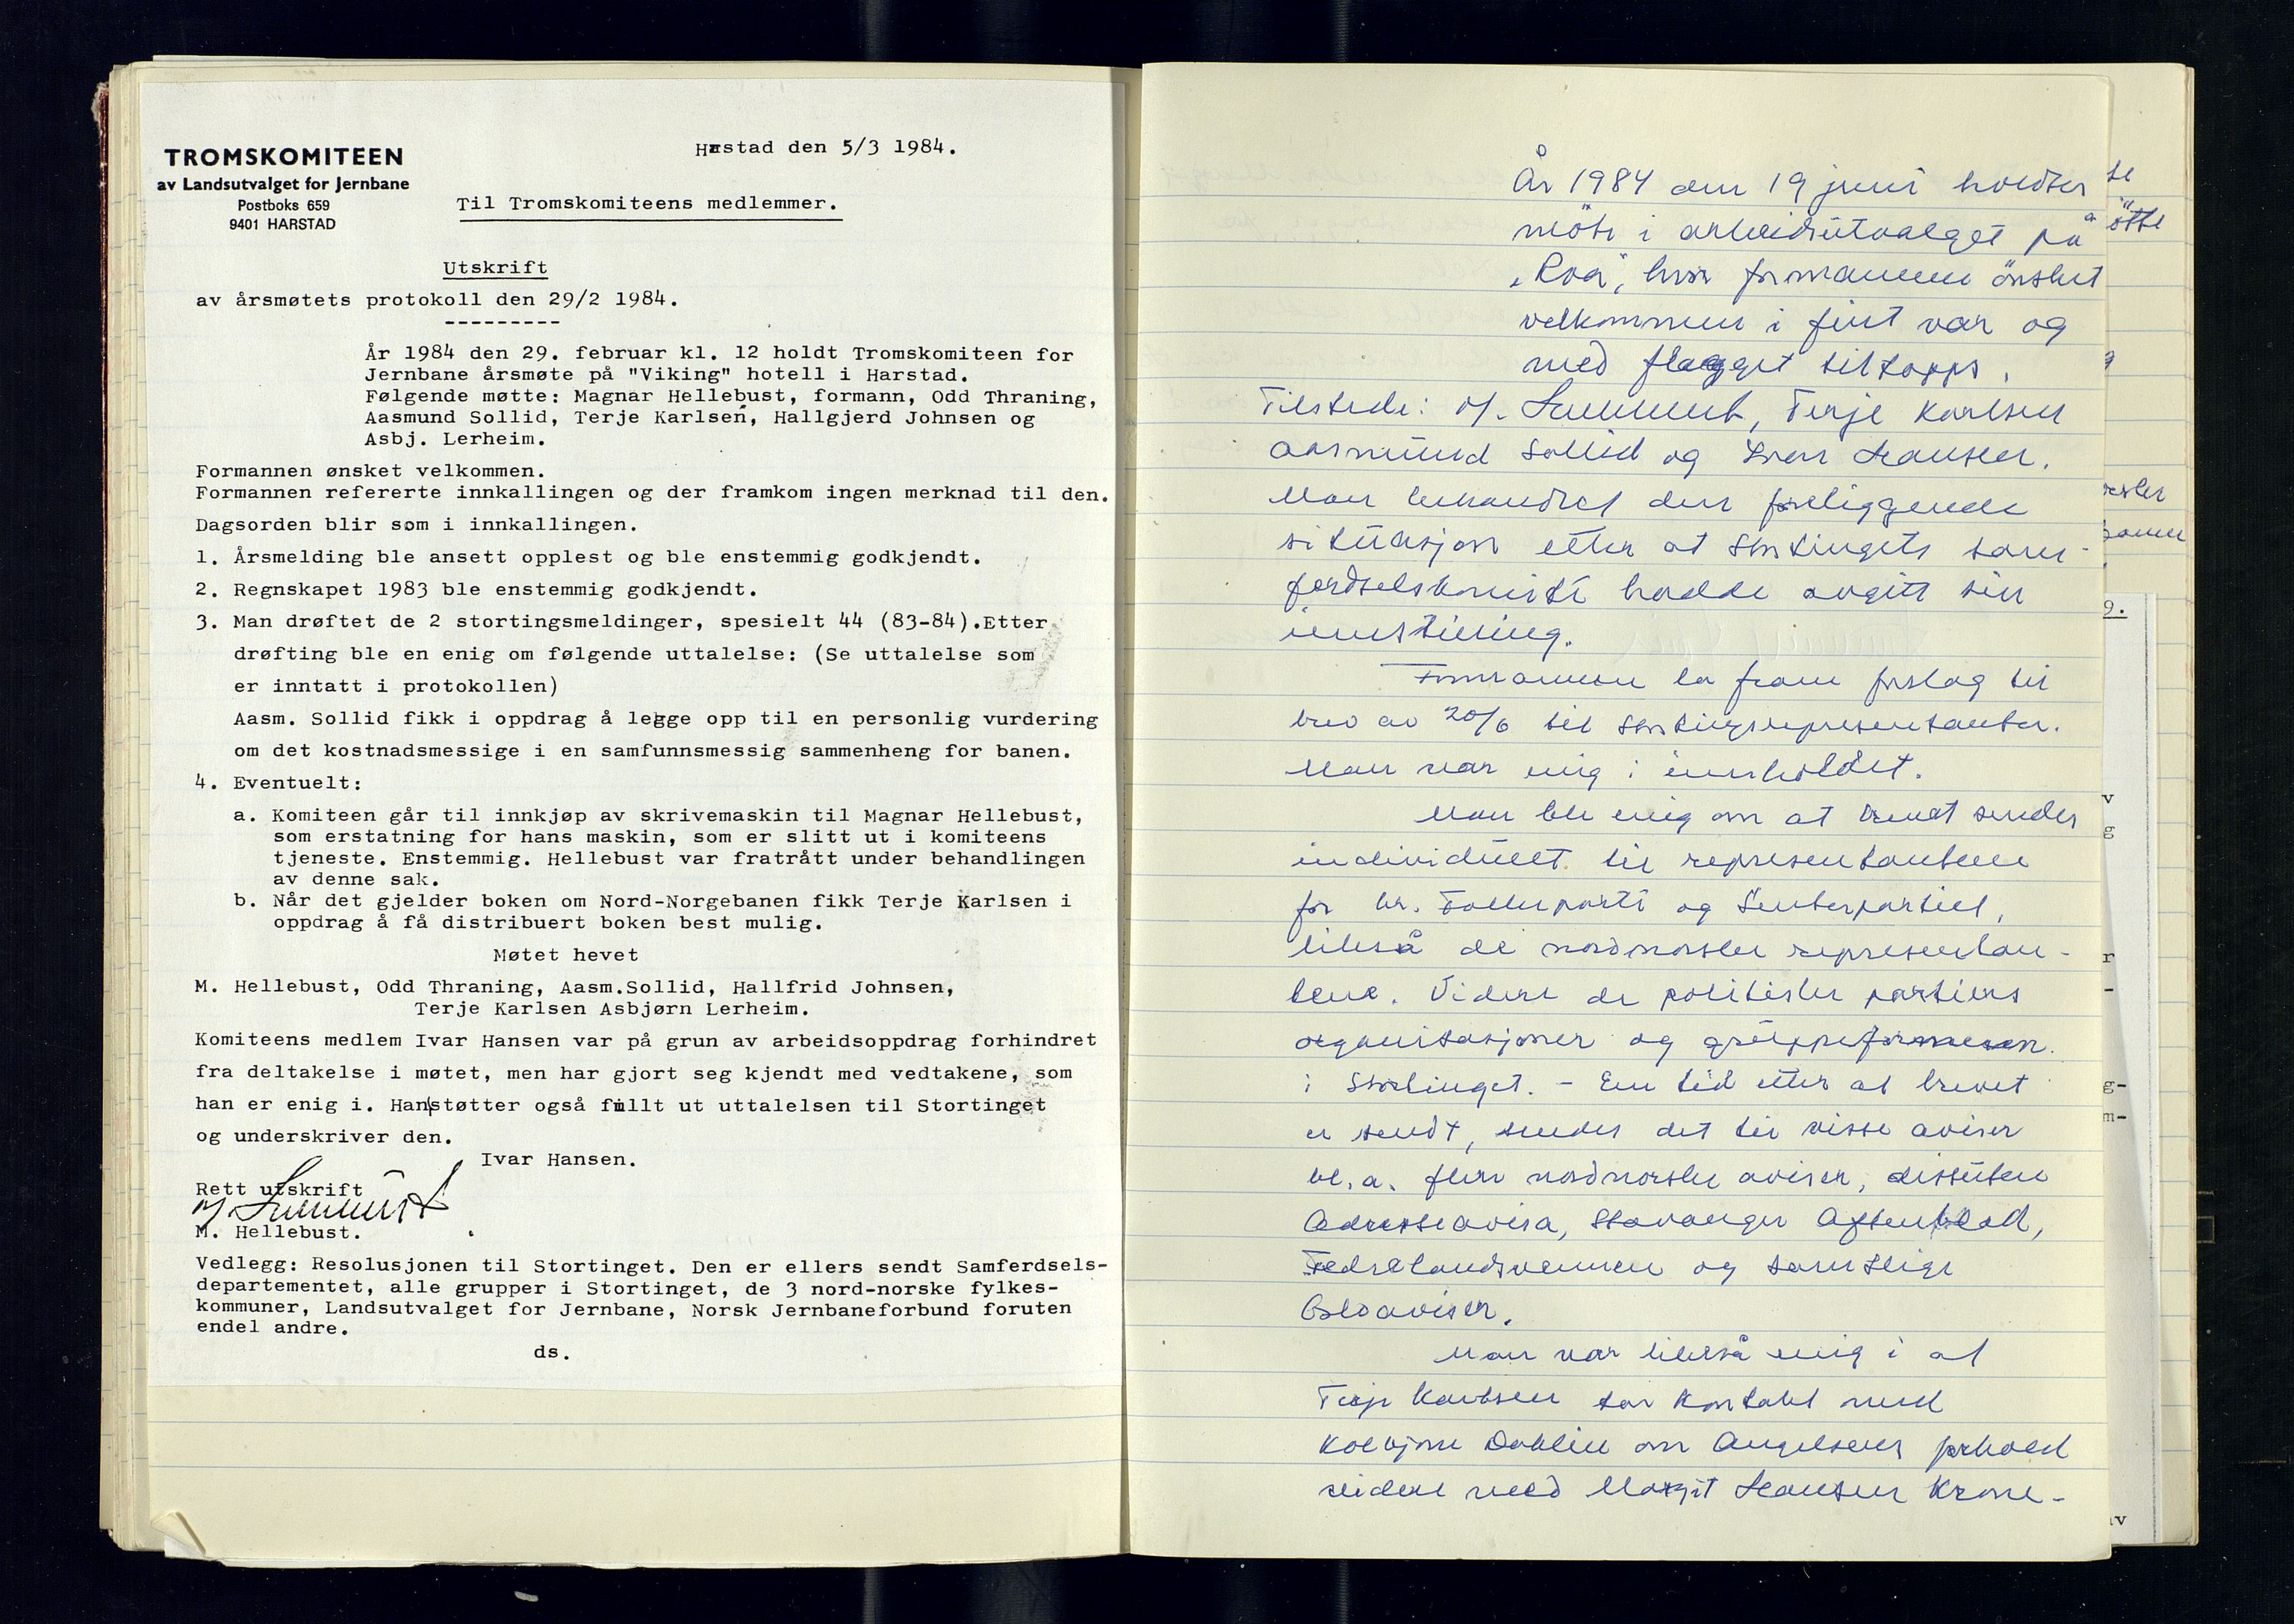 TROMSKOMITEEN
av Landsutvalget for Jernbane
Postboks 659
9401 HARSTAD
Hrstad den 5/3 1984.
Til Tromskomiteens medlemmer.
Utskrift
av årsmøtets protokoll den 29/2 1984.
---------
År 1984 den 29. februar kl. 12 holdt Tromskomiteen for
Jernbane årsmøte på "Viking" hotell i Harstad.
Følgende møtte: Magnar Hellebust, formann, Odd Thraning,
Aasmund Sollid, Terje Karlsen, Hallgjerd Johnsen og
Asbj. Lerheim.
Formannen ønsket velkommen.
Formannen refererte innkallingen og der framkom ingen merknad til den.
Dagsorden blir som i innkallingen.
1. Årsmelding ble ansett opplest og ble enstemmig godkjendt.
2. Regnskapet 1983 ble enstemmig godkjendt.
3. Man drøftet de 2 stortingsmeldinger, spesielt 44 (83-84).Etter
drøfting ble en enig om følgende uttalelse: (Se uttalelse som
er inntatt i protokollen)
Aasm. Sollid fikk i oppdrag å legge opp til en personlig vurdering
om det kostnadsmessige i en samfunnsmessig sammenheng for banen.
4. Eventuelt:
a. Komiteen går til innkjøp av skrivemaskin til Magnar Hellebust,
som erstatning for hans maskin, som er slitt ut i komiteens
tjeneste. Enstemmig. Hellebust var fratrått under behandlingen
av denne sak.
b. Når det gjelder boken om Nord-Norgebanen fikk Terje Karlsen i
oppdrag å få distribuert boken best mulig.
Møtet hevet
M. Hellebust, Odd Thraning, Aasm.Sollid, Hallfrid Johnsen,
Terje Karlsen Asbjørn Lerheim.
Komiteens medlem Ivar Hansen var på grun av arbeidsoppdrag forhindret
fra deltakelse i møtet, men har gjort seg kjendt med vedtakene, som
han er enig i. Han støtter også fullt ut uttalelsen til Stortinget
og underskriver den.
Ivar Hansen.
Rett utskrift
M. Hellebust
M. Hellebust.
Vedlegg: Resolusjonen til Stortinget. Den er ellers sendt Samferdsels-
departementet, alle grupper i Stortinget, de 3 nord-norske fylkes-
kommuner, Landsutvalget for Jernbane, Norsk Jernbaneforbund foruten
endel andre.
ds.
År 1984 den 19 juni holdtes
møte i arbeidsutvalget på
"Roa", hvor formannen ønsket
velkommen i fint vær og
med flagget til topps.
Tilstede: M. Hellebust, Terje Karlsen
Aasmund Sollid og Ivar Hansen.
Man behandlet den foreliggende
situasjon etter at Stortingets sam-
ferdselskomité hadde avgitt sin
innstilling.
Formannen la fram forslag til
brev av 20/6 til Stortingsrepresentanter.
Man var enig i innholdet.
Man ble enig om at brevet sendes
individuelt til representantene
for Kr. Folkeparti og Senterpartiet,
likeså de nordnorske representan-
tene. Videre de politiske partiers
organisasjoner og gruppeformenn
i Stortinget. - En tid etter at brevet
er sendt, sendes det til visse aviser
bl.a. flere nordnorske aviser, dessuten
Adresseavisa, Stavanger Aftenblad,
Fedrelandsvennen og samtlige
Osloaviser.
Man var likeså enig i at
Terje Karlsen tar kontakt med
Kolbjørn Dahlin om Angelsens forhold
videre med Margit Hansen Krone-